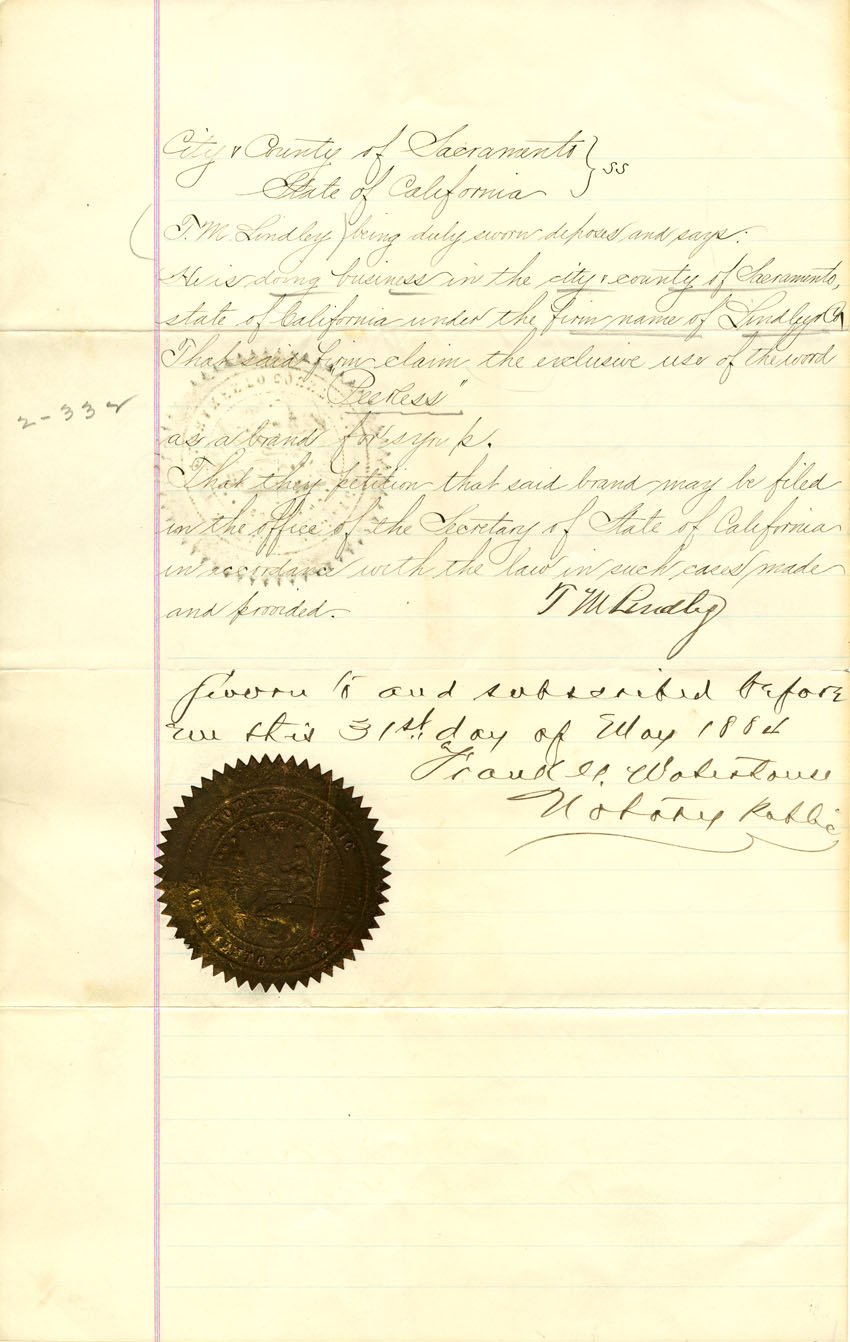 City & County of Sacramento } ss
State of California
T. M. Lindley) being duly sworn deposes and says:
He is doing business in the city & county of Sacramento,
state of California under the firm name of Lindley & Co
That said firm claim the exclusive use of the word
"Peerless"
2-332
as a brand for syrup.
That they petition that said brand may be filed
in the office of the Secretary of State of California
in accordance with the law in such cases made
and provided.
T M Lindley
Sworn to and subscribed before
me this 31st day of May 1884
Frank Waterhouse
Notary Public
NOTARY PUBLIC
SACRAMENTO COUNTY